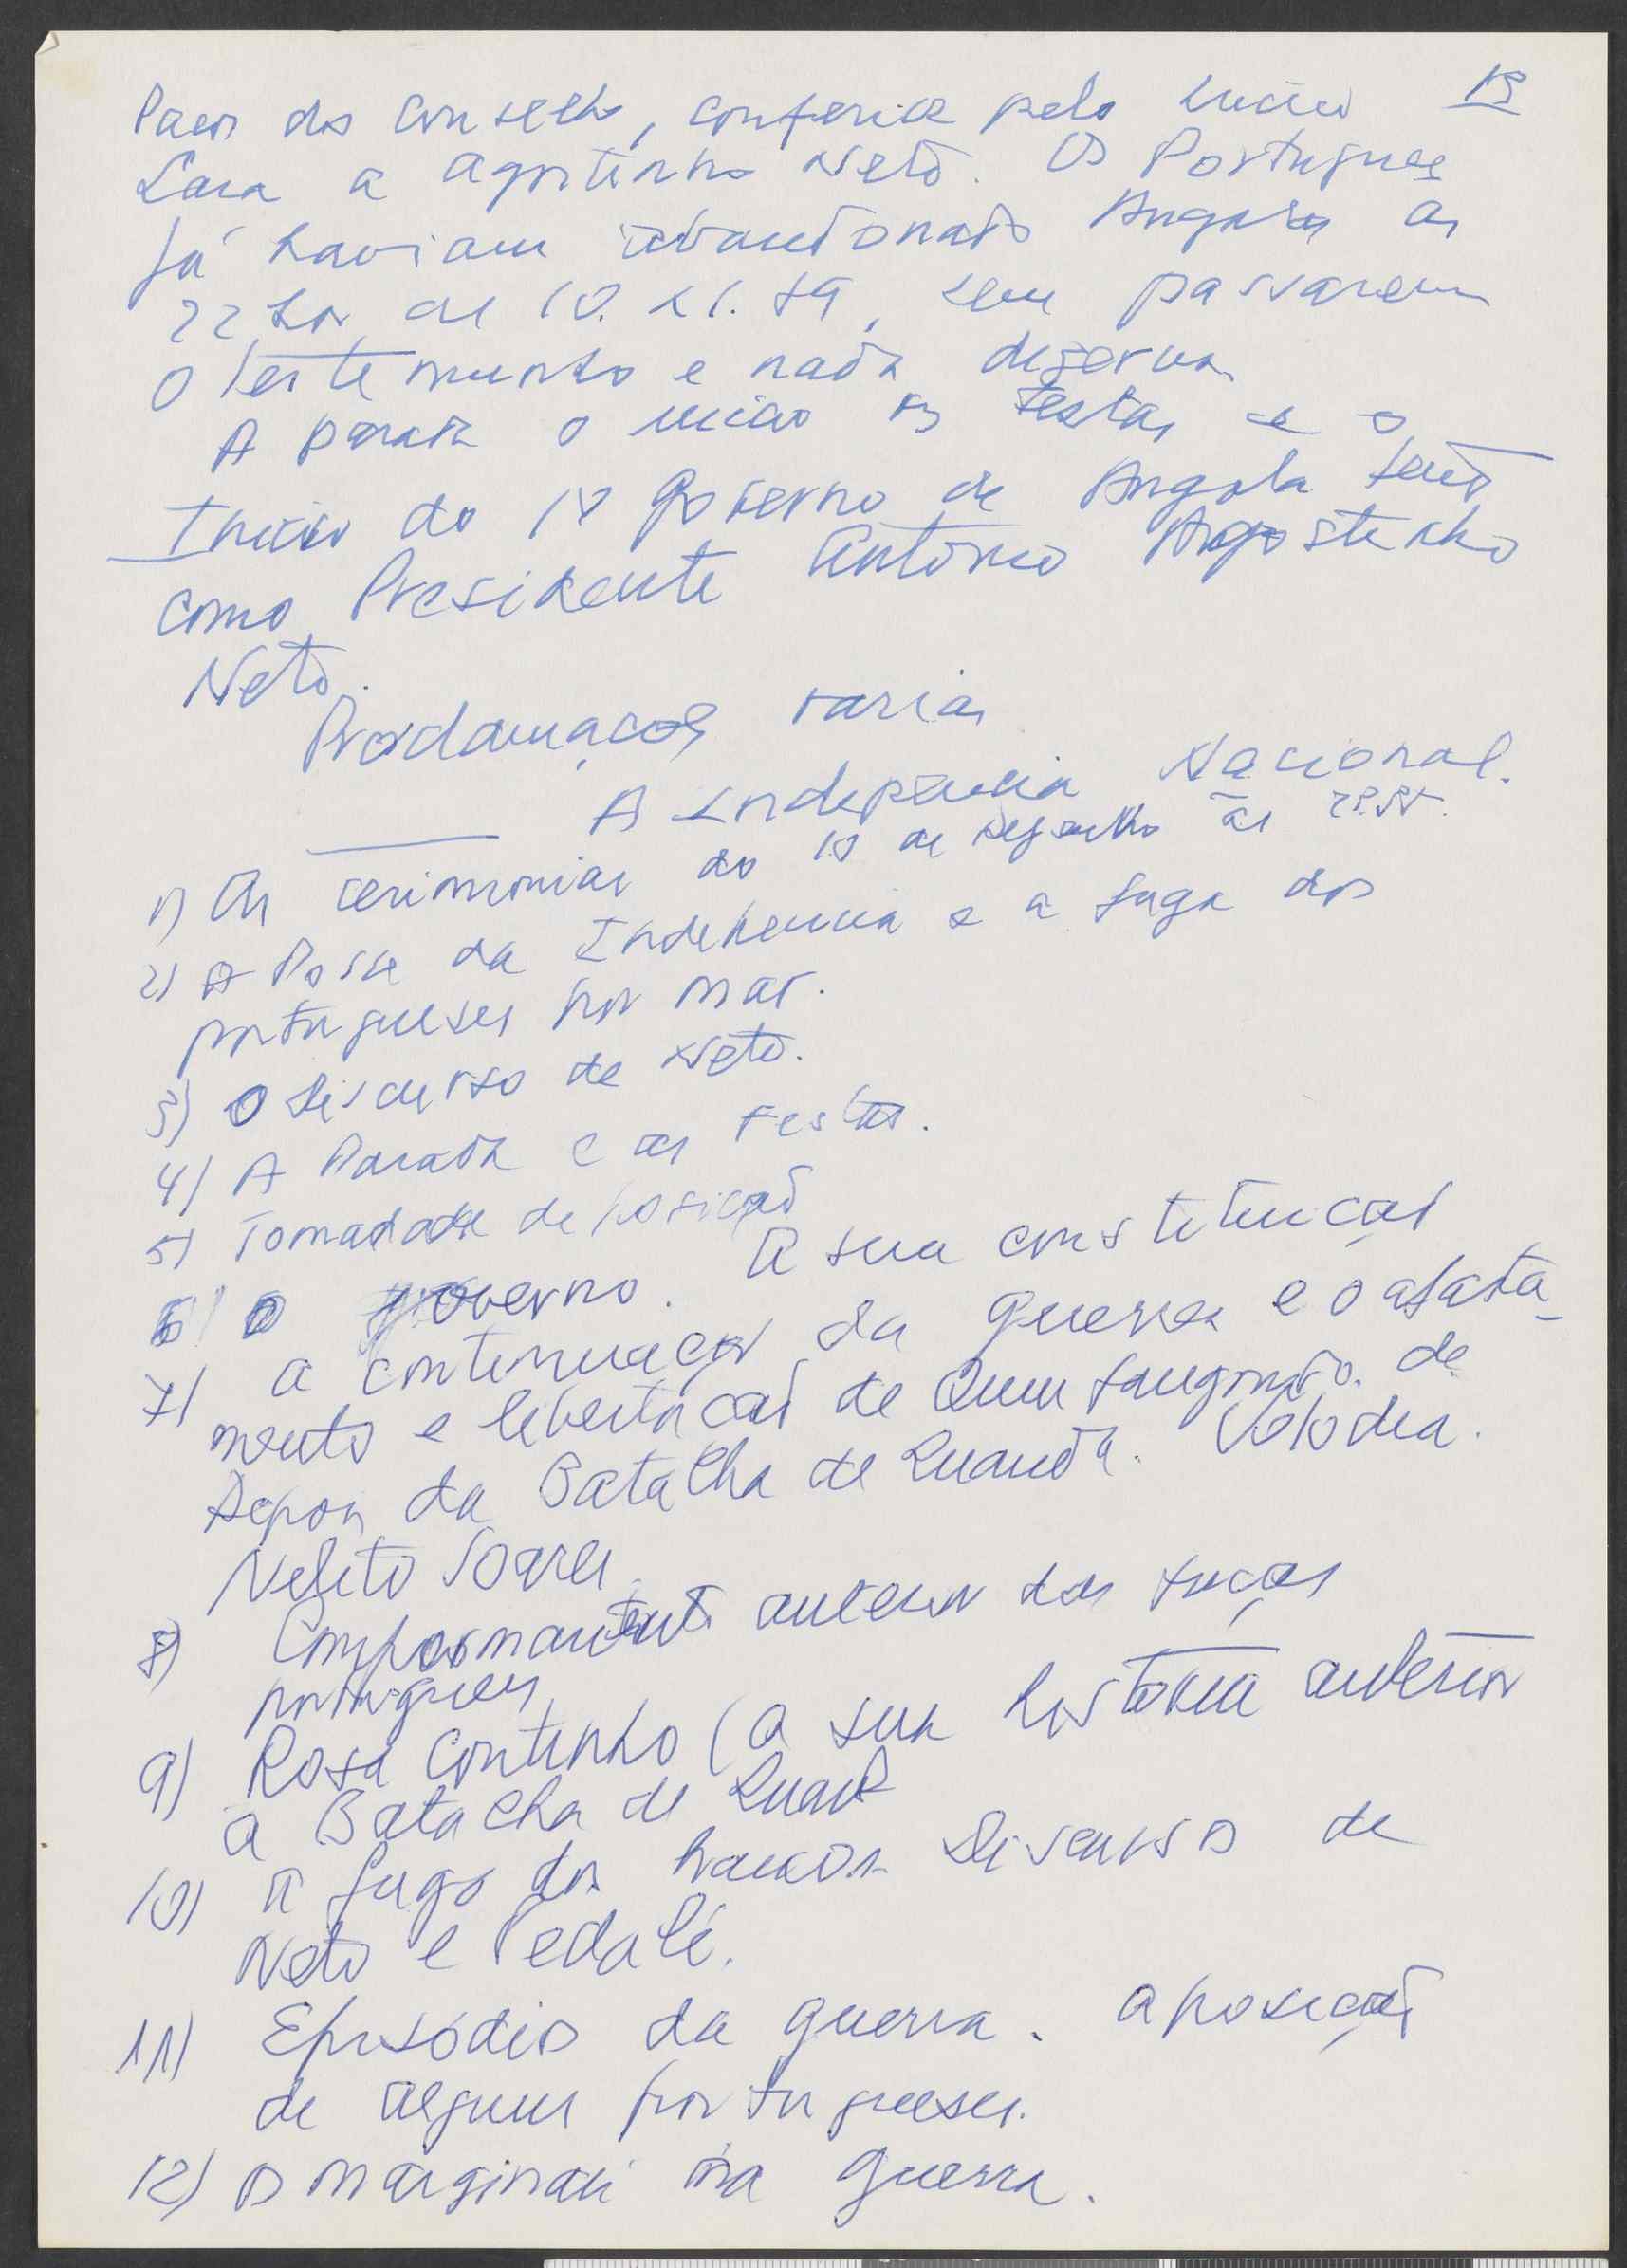 13
Paços do Conselho, conferida pelo Lúcio
Lara a Agostinho Neto. Os Portugues
Já haviam abandonado Angola as
22 hs de 10. XI. 79, sem passarem
o testemunho e nada disseram
A parada o inicio as Festas e o
Inicio do 1º Governo de Angola tendo
como Presidente António Agostinho
Neto.
Proclamaçoes varias
A Independencia Nacional.
1) As cerimonias do 10 de às
2) A Posse da Indepencia e a fuga dos
portugueses por mar.
3) O Discurso de Neto.
4) A Parada e as Festas.
5) Tomada de Posição
6) O governo. A sua constituição
7) a continuação da Guerra e o afasta-
mento e libertação de Quinfangondo. de
Depois da Batalha de Luanda. Valodia.
Nelito Soares
8) anterior das forças
portugueses
9) Rosa Coutinho (a sua história anterior
a Batalha de Luanda
10) A fuga dos brancos. Discurso de
Neto e Pedalé.
11) Episódios da guerra. A posição
de alguns portugueses.
12) Os marginais na guerra.